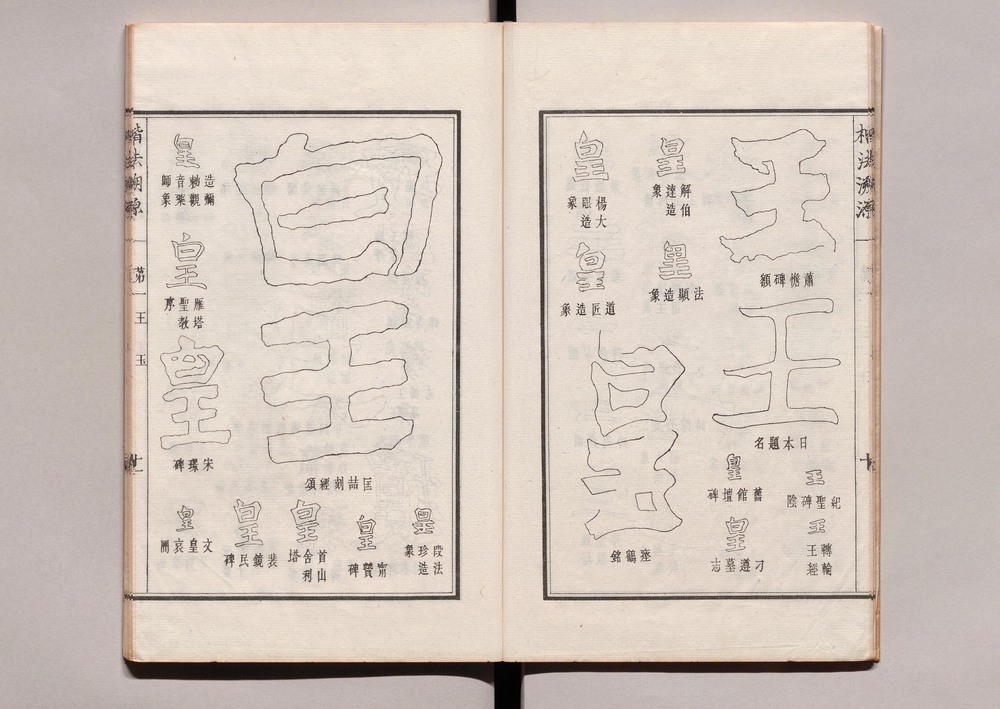 楷法溯源
十
王
蕭憺碑額
王
日本題名
王
紀聖碑陰
王
轉輪王經
皇
解伯達造象
皇
法顯造象
皇
舊館壇碑
皇
刁遵墓志
皇
楊大眼造象
皇
道匠造象
皇
瘞鶴銘
皇
匡喆刻經頌
皇
段法珍造象
皇
甯贙碑
皇
首山舍利塔
皇
裴鏡民碑
皇
造彌勒觀音師象
皇
雁塔聖教序
皇
宋璟碑
皇
文皇哀冊
楷法溯源
第一
王
玉
十一